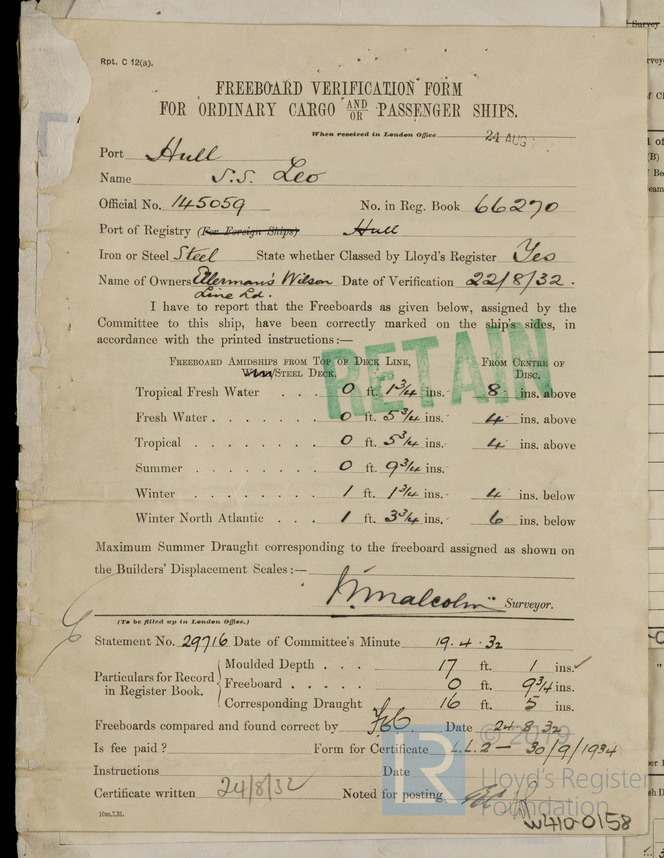 Rpt. C 12(a).
FREEBOARD VERIFICATION FORM
FOR ORDINARY CARGO AND/OR PASSENGER SHIPS.
When received in London Office 24 AUG
Port Hull
Name S.S. Leo
Official No. 145059 No. in Reg. Book 66270
Port of Registry (For Foreign Ships) Hull
Iron or Steel Steel State whether Classed by Lloyd's Register Yes
Name of Owners Ellerman's Wilson Date of Verification 22/8/32.
Line Ld.
I have to report that the Freeboards as given below, assigned by the
Committee to this ship, have been correctly marked on the ship's sides, in
accordance with the printed instructions:—
RETAIN
FREEBOARD AMIDSHIPS FROM TOP OF DECK LINE, FROM CENTRE OF
/STEEL DECK. DISC.
Tropical Fresh Water . . . 0 ft. 1 3/4 ins. 8 ins. above
Fresh Water . . . . . . . 0 ft. 5 3/4 ins. 4 ins. above
Tropical . . . . . . . . 0 ft. 5 3/4 ins. 4 ins. above
Summer . . . . . . . . 0 ft. 9 3/4 ins.
Winter . . . . . . . . 1 ft. 1 3/4 ins. 4 ins. below
Winter North Atlantic . . . 1 ft. 3 3/4 ins. 6 ins. below
Maximum Summer Draught corresponding to the freeboard assigned as shown on
the Builders' Displacement Scales:—
Malcolm Surveyor.
(To be filled up in London Office.)
Statement No. 29716 Date of Committee's Minute 19.4.32
Particulars for Record in Register Book.
Moulded Depth . . . 17 ft. 1 ins.
Freeboard . . . . . 0 ft. 9 3/4 ins.
Corresponding Draught 16 ft. 5 ins.
Freeboards compared and found correct by Date 24 8 32
Is fee paid? Form for Certificate L.L.2 — 30/9/1934
Instructions Date
Certificate written 24/8/32 Noted for posting
10m.7.31.
© 2019
LR
Lloyd's Register
Foundation
W410-0158